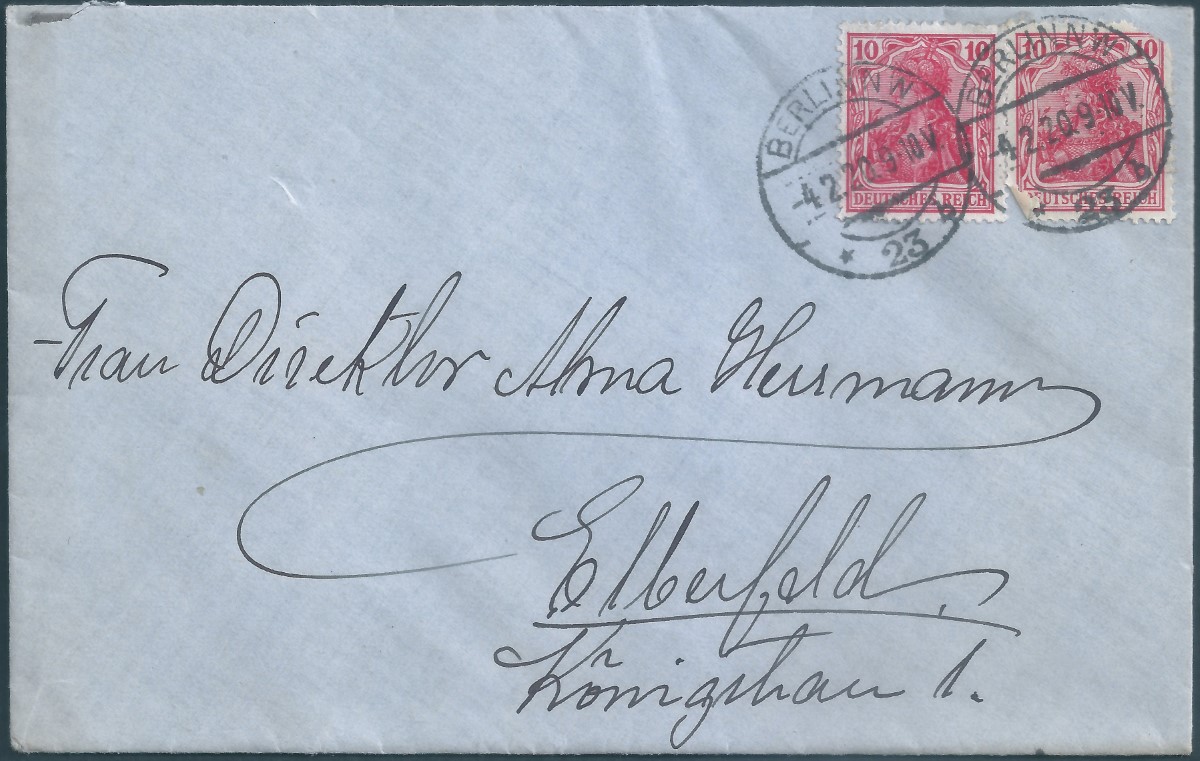 10 10
DEUTSCHES REICH
10 10
DEUTSCHES REICH
BERLIN NW
-4.2.20.9-10V.
* 23 b
BERLIN NW
-4.2.20.9-10V.
* 23 b
Frau Direktor Alma Herrmann
Elberfeld.
1.